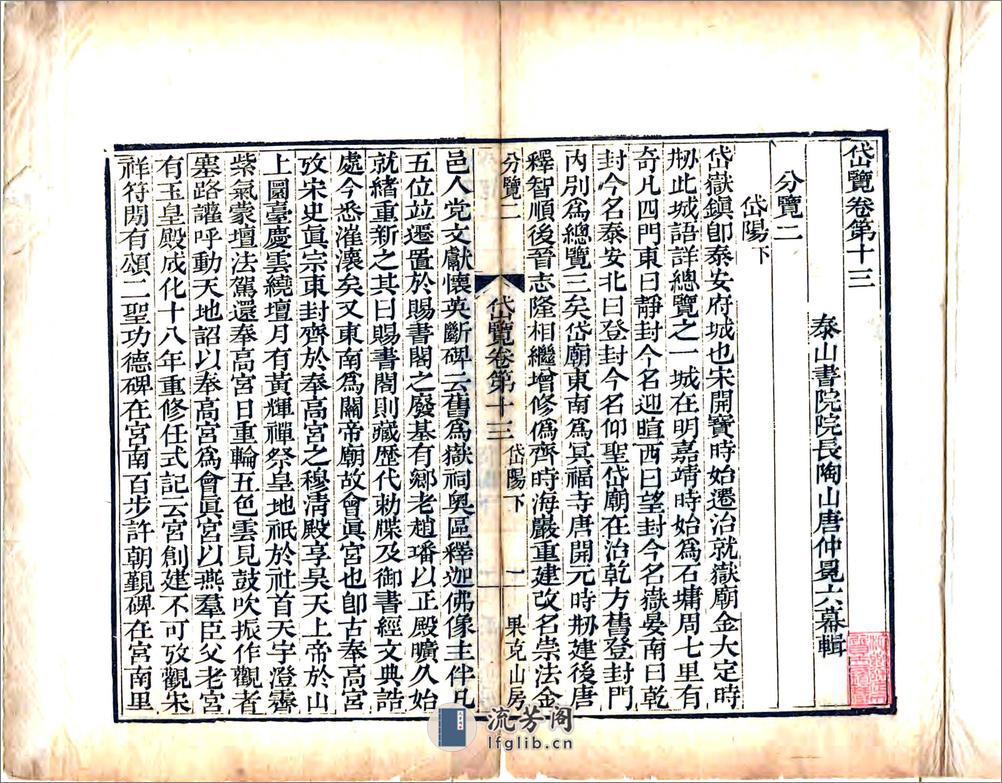 岱覽卷第十三
泰山書院院長陶山唐仲冕六幕輯
分覽二
岱陽下
岱嶽鎮卽泰安府城也宋開寶時始遷治就嶽廟金大定時
剏此城語詳總覽之一城在明嘉靖時始為石墉周七里有
奇凡四門東曰靜封今名迎暄西曰望封今名嶽晏南曰乾
封今名泰安北曰登封今名仰聖岱廟在治乾方舊登封門
內別為總覽三矣岱廟東南為冥福寺唐開元時剏建後唐
釋智順後晉志隆相繼增修偽齊時海嚴重建改名崇法金
分覽二
岱覽卷第十三
岱陽下
一
果克山房
邑人党文獻懷英斷碑云舊為嶽祠奧區釋迦佛像主伴凡
五位竝遷置於賜書閣之廢基有鄉老趙璠以正殿曠久始
就緒重新之其曰賜書閣則藏歷代勅牒及御書經文典誥
處今悉漼瀼矣又東南為關帝廟故會眞宮也卽古奉高宮
攷宋史眞宗東封齊於奉高宮之穆清殿享昊天上帝於山
上圜臺慶雲繞壇月有黃輝禪祭皇地祇於社首天宇澄霽
紫氣蒙壇法駕還奉高宮日重輪五色雲見鼓吹振作觀者
塞路讙呼動天地詔以奉高宮為會眞宮以燕羣臣父老宮
有玉皇殿成化十八年重修任式記云宮創建不可攷觀宋
祥符閒有頌二聖功德碑在宮南百步許朝覲碑在宮南里
流芳阁
lfglib.cn